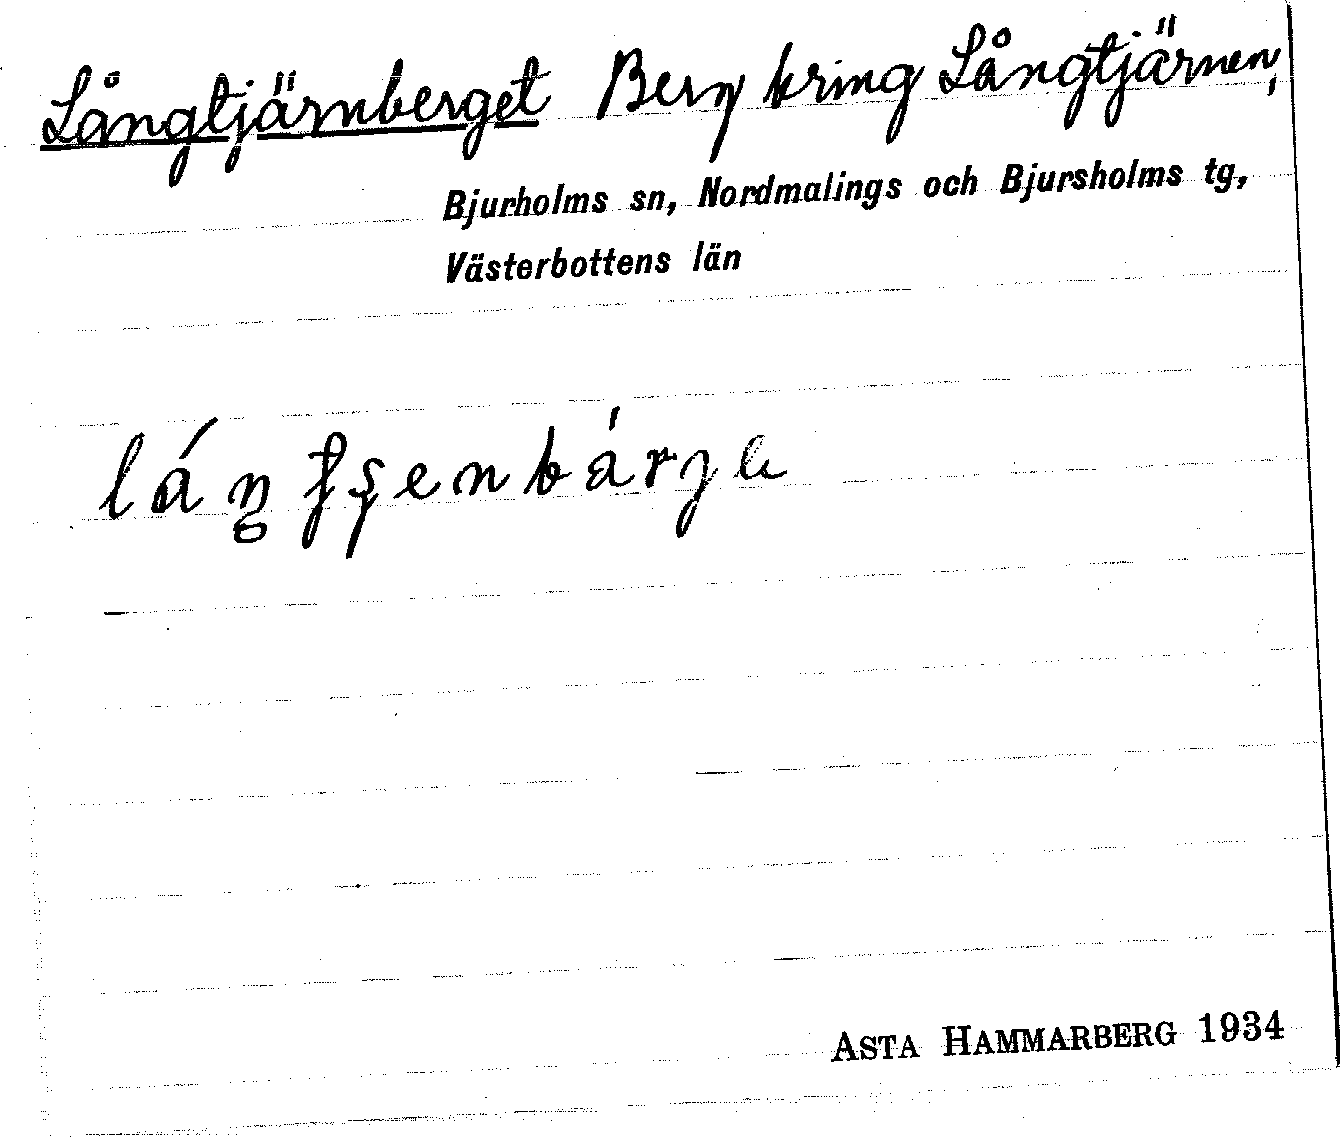 Långtjärnberget Berg kring Långtjärnen,
Bjurholms sn, Nordmalings och Bjursholms tg,
Västerbottens län
ASTA HAMMARBERG 1934